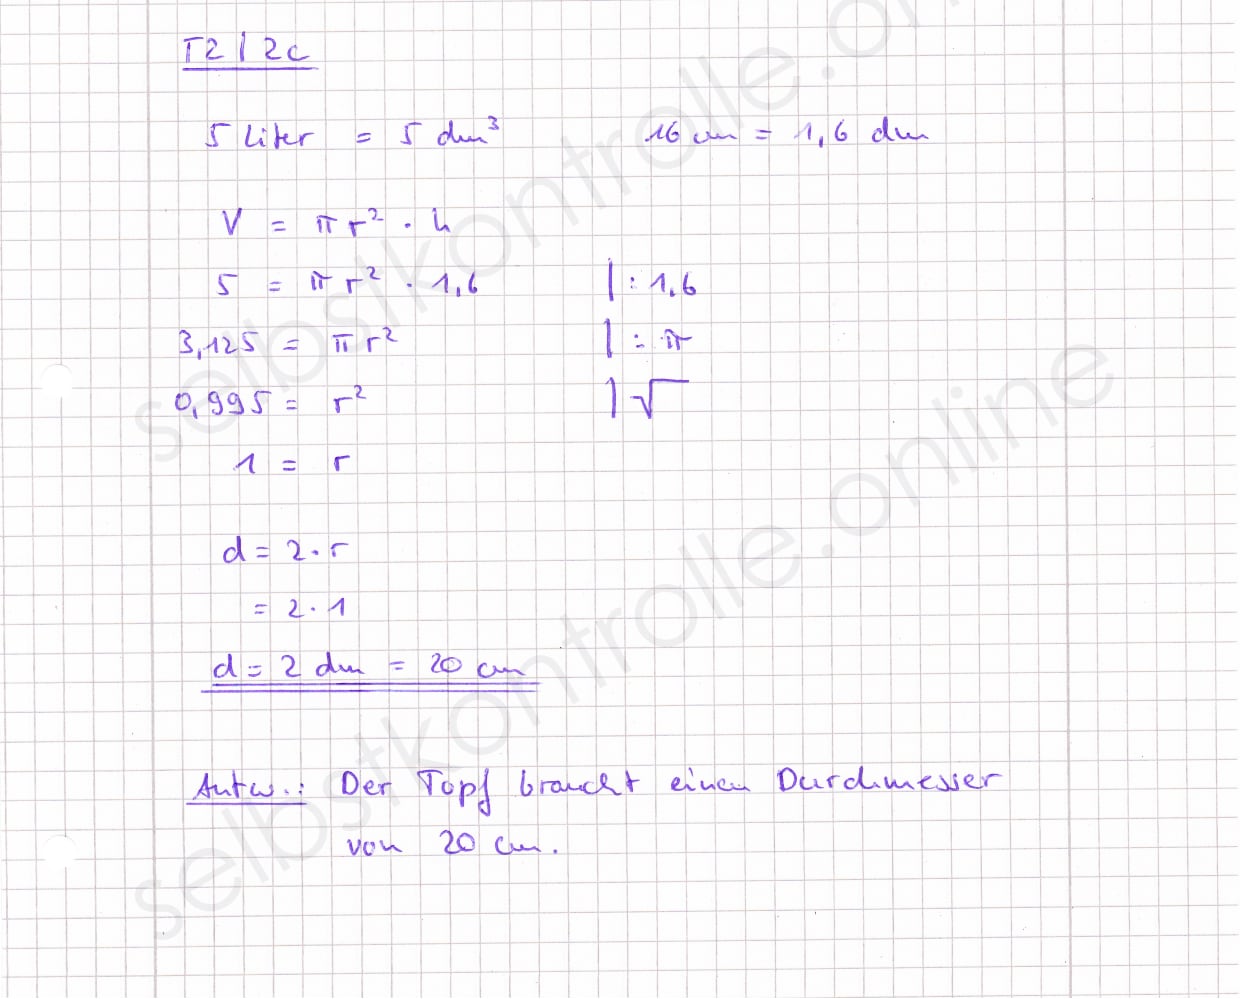 T2 | 2c
5 Liter = 5 dm³ 16 cm = 1,6 dm
V = π r² · h
5 = π r² · 1,6 | : 1,6
3,125 = π r² | : π
0,995 = r² | √
1 = r
d = 2 · r
= 2 · 1
d = 2 dm = 20 cm
Antw.: Der Topf braucht einen Durchmesser
von 20 cm.
selbstkontrolle.online
selbstkontrolle.online